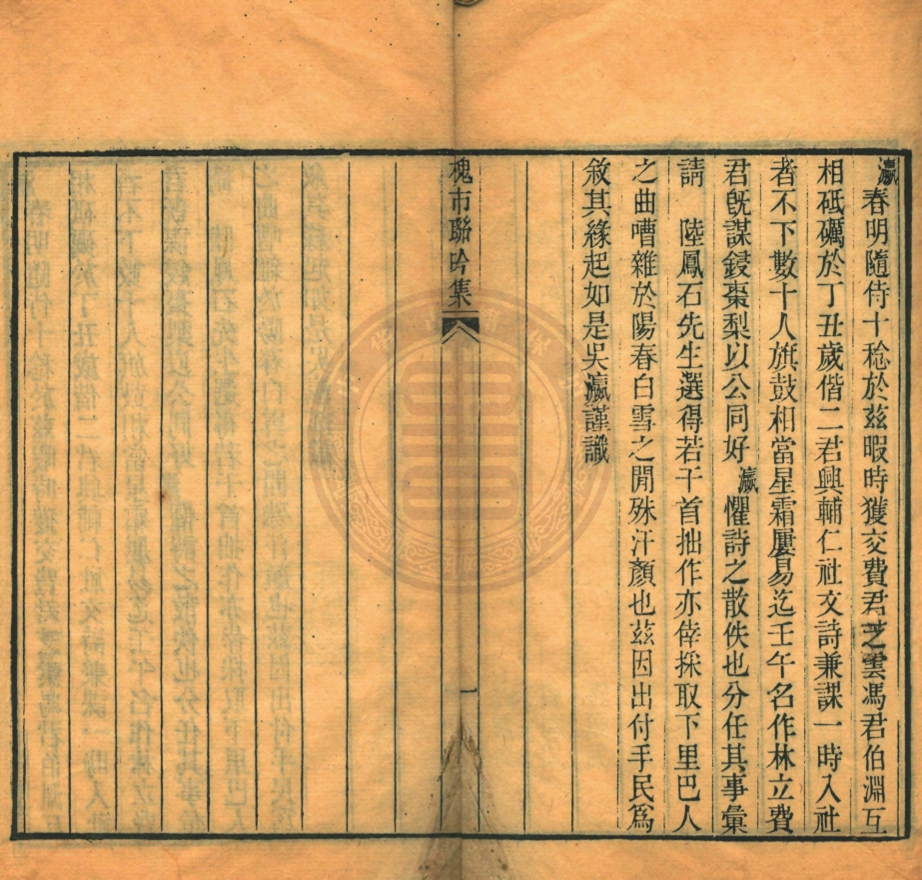 瀛春明隨侍十稔於茲暇時獲交費君芝雲馮君伯淵互
相砥礪於丁丑歲偕二君興輔仁社文詩兼課一時入社
者不下數十人旗鼓相當星霜屢易迄壬午名作林立費
君旣謀鋟棗梨以公同好瀛懼詩之散佚也分任其事彙
請　陸鳳石先生選得若干首拙作亦倖採取下里巴人
之曲嘈雜於陽春白雪之閒殊汗顏也茲因出付手民爲
敘其緣起如是吳瀛謹識
槐市聯吟集
一